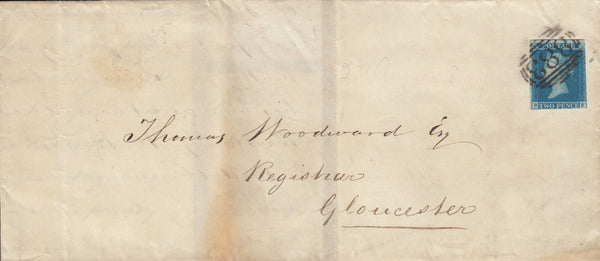 POSTAGE
TWO PENCE
Thomas Woodward Esq
Registrar
Gloucester